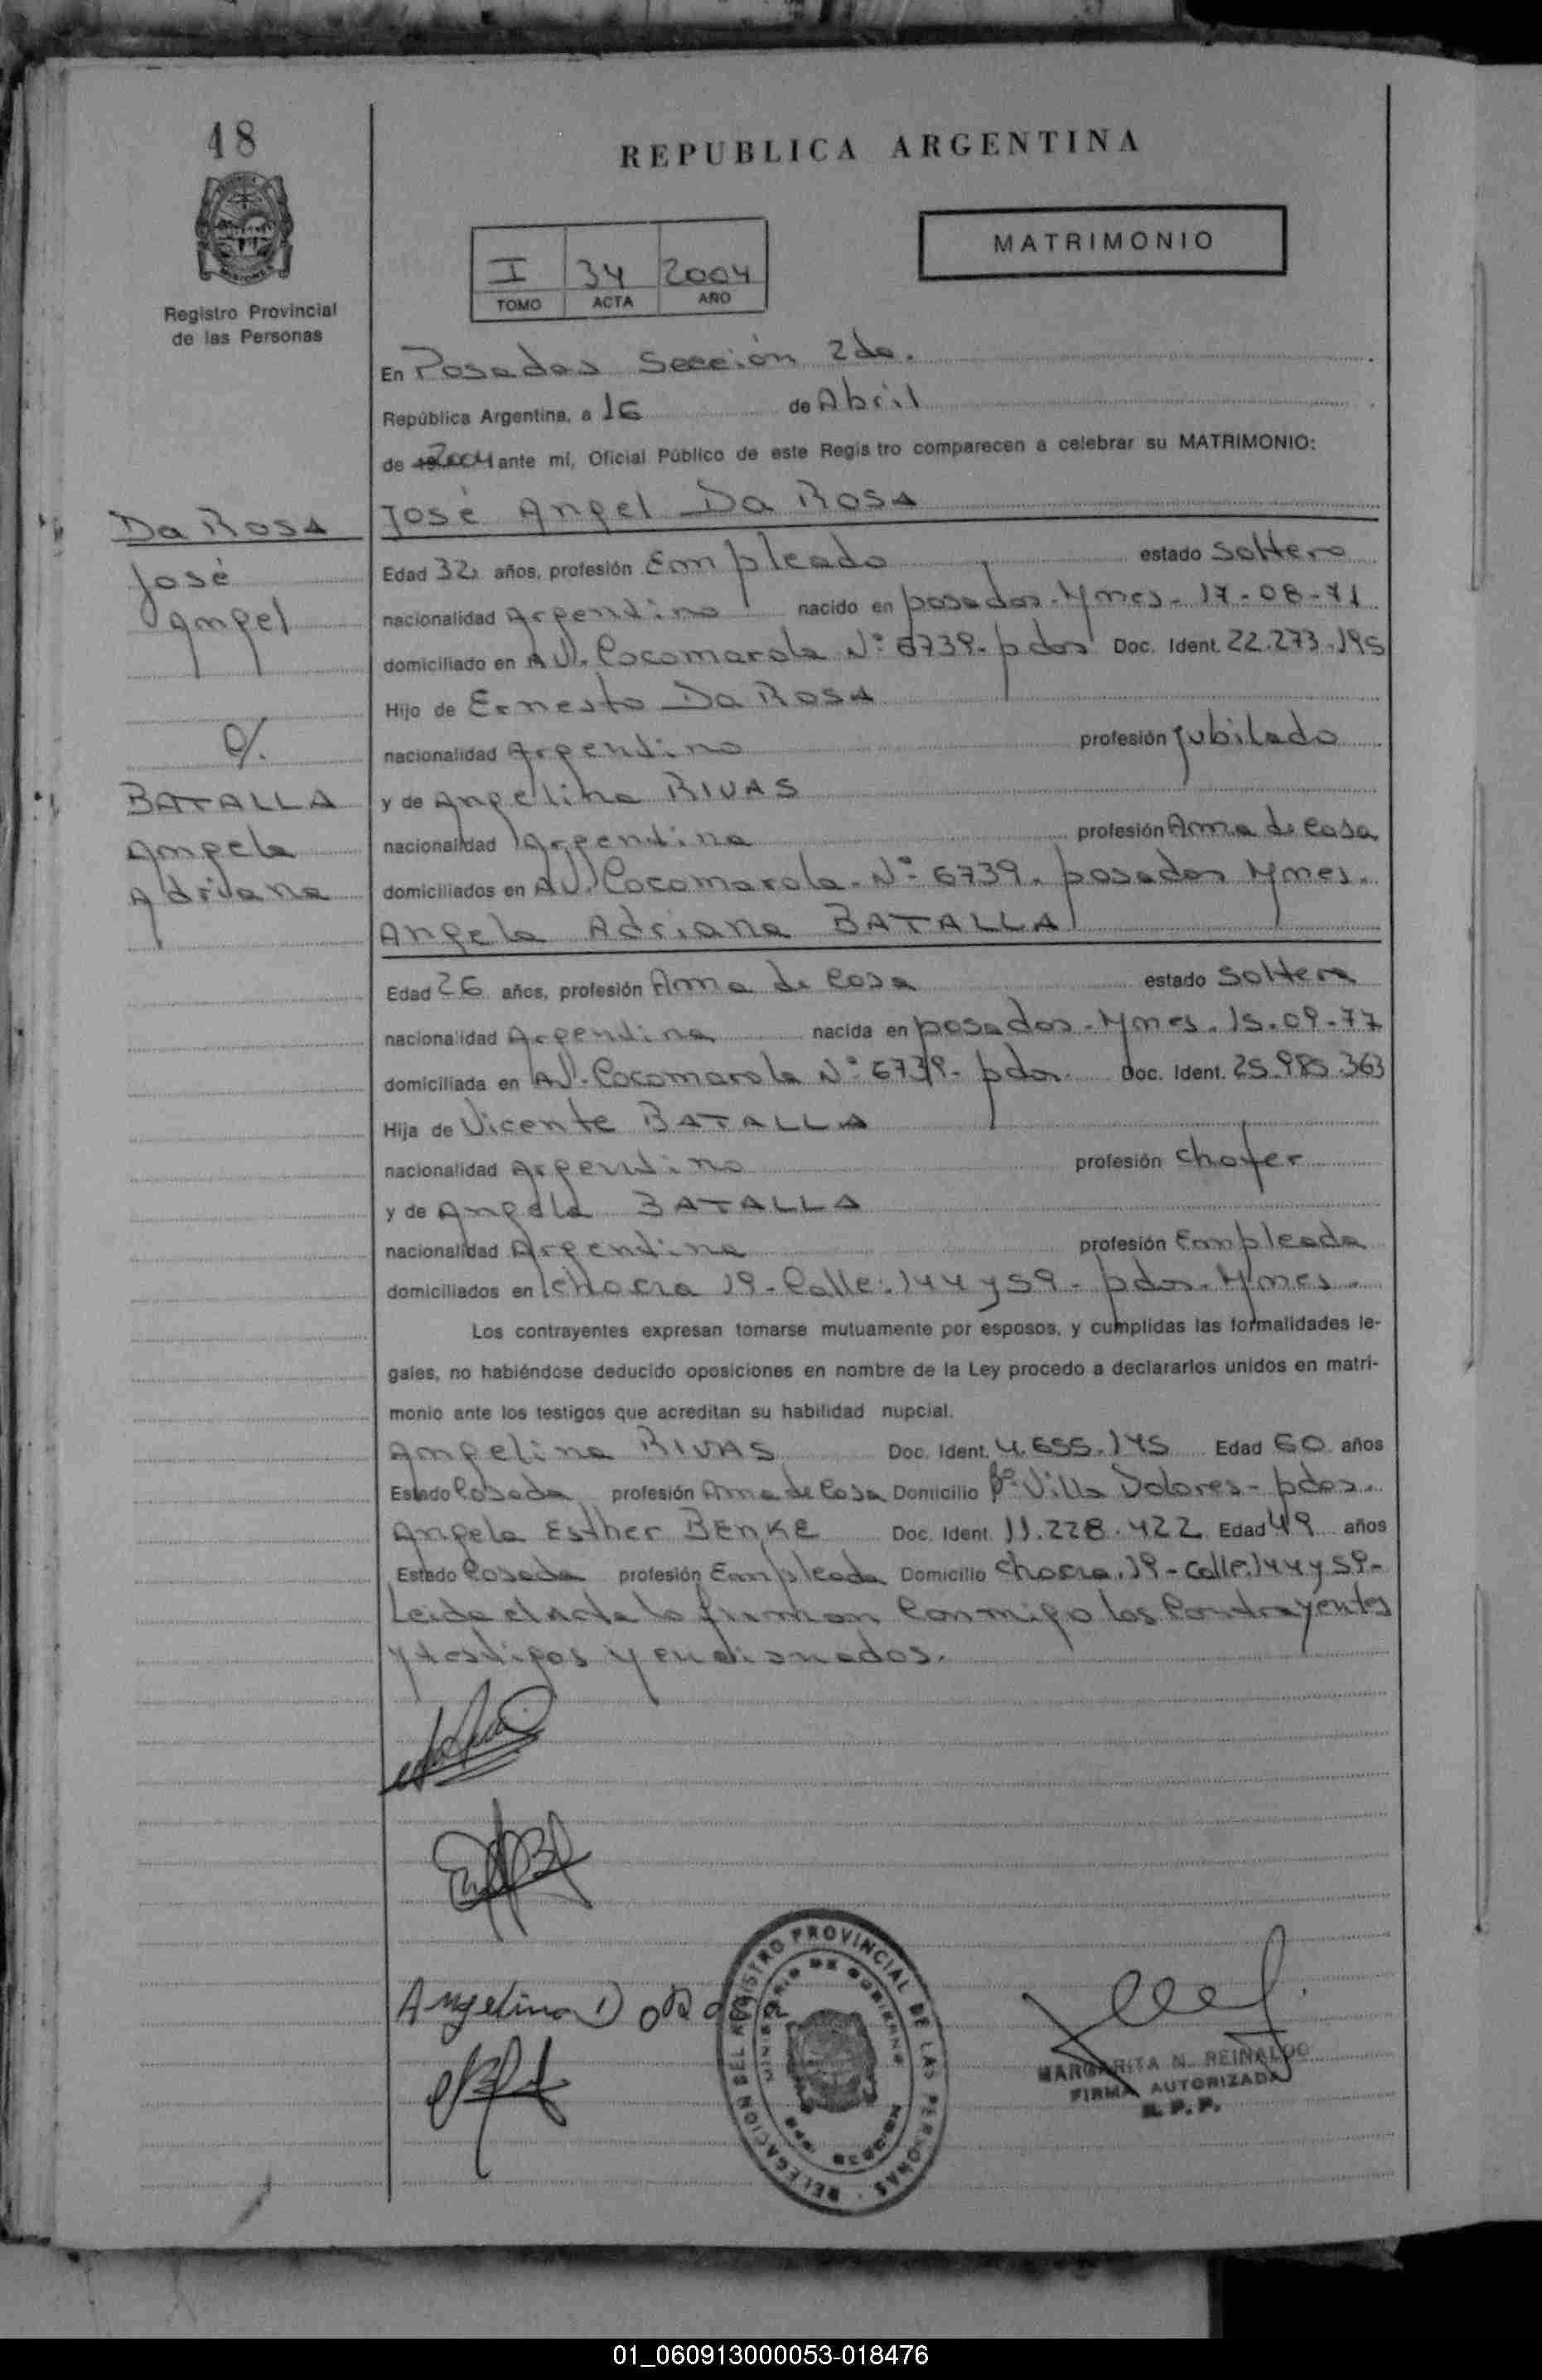 18
REPUBLICA ARGENTINA
MATRIMONIO
I 34 2004
TOMO ACTA AÑO
Registro Provincial
de las Personas
En Posadas Sección 2da.
República Argentina, a 16 de Abril
de 2004 ante mí, Oficial Público de este Registro comparecen a celebrar su MATRIMONIO:
Da Rosa
José
Angel
c/.
BATALLA
Angela
Adriana
José Angel Da Rosa
Edad 32 años, profesión Empleado estado Soltero
nacionalidad Argentino nacido en posadas-Mnes- 17-08-71
domiciliado en AV. Cocomarola Nº 6739- pdas Doc. Ident. 22.273.195
Hijo de Ernesto Da Rosa
nacionalidad Argentino profesión Jubilado
y de Angelina RIVAS
nacionalidad Argentina profesión Ama de Casa
domiciliados en AV. Cocomarola- Nº 6739. posadas Mnes.
Angela Adriana BATALLA
Edad 26 años, profesión Ama de Casa estado Soltera
nacionalidad Argentina nacida en posadas-Mnes. 15.09-77
domiciliada en AV. Cocomarola Nº 6739- pdas Doc. Ident. 25.985.363
Hija de Vicente BATALLA
nacionalidad Argentino profesión chofer
y de Angela BATALLA
nacionalidad Argentina profesión Empleada
domiciliados en cHacra 19-Calle:144 y 59- pdas-Mnes.
Los contrayentes expresan tomarse mutuamente por esposos, y cumplidas las formalidades le-
gales, no habiéndose deducido oposiciones en nombre de la Ley procedo a declararlos unidos en matri-
monio ante los testigos que acreditan su habilidad nupcial.
Angelina RIVAS Doc. Ident. 4.655.145 Edad 60 años
Estado Casada profesión Ama de Casa Domicilio Bº Villa Dolores- pdas.
Angela Esther BENKE Doc. Ident. 11.228.422 Edad 49 años
Estado Casada profesión Empleada Domicilio chacra.19-Calle.144 y 59-
Leida el acta la firman Conmigo los Contrayentes
y testigos
Angelina Da Rosa
DELEGACION DEL REGISTRO PROVINCIAL DE LAS PERSONAS
MINISTERIO DE GOBIERNO
MARGARITA N. REINALDO
FIRMA AUTORIZADA
R. P. P.
01_060913000053-018476